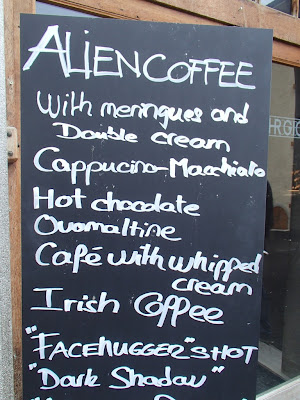 ALIEN COFFEE
With meringues and
Double cream
Cappucino-Macchiato
Hot chocolate
Ovomaltine
Café with whipped
cream
Irish Coffee
"FACEHUGGER"SHOT
"Dark Shadow"